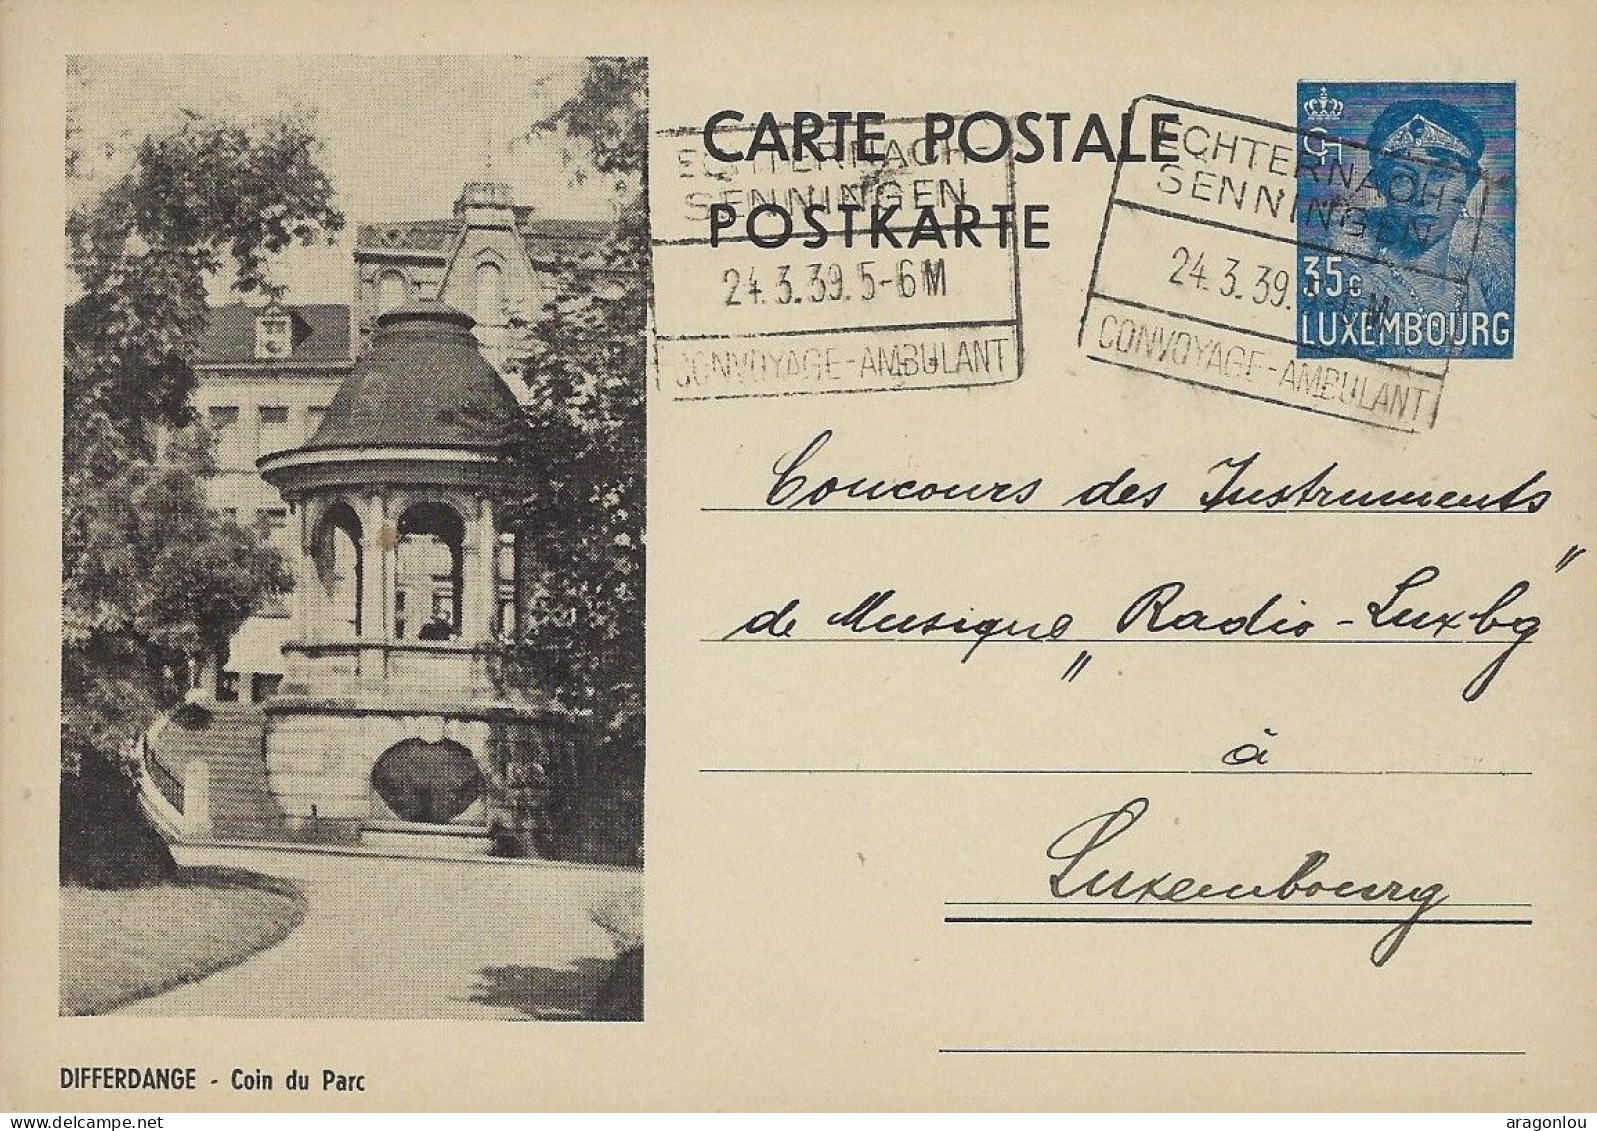 CARTE POSTALE
POSTKARTE
ECHTERNACH-
SENNINGEN
24.3.39.5-6M
CONVOYAGE-AMBULANT
ECHTERNACH-
SENNINGEN
24.3.39.
CONVOYAGE-AMBULANT
35c
LUXEMBOURG
Concours des Instruments
de Musique „Radio-Luxbg"
à
Luxembourg
DIFFERDANGE - Coin du Parc
aragonlou